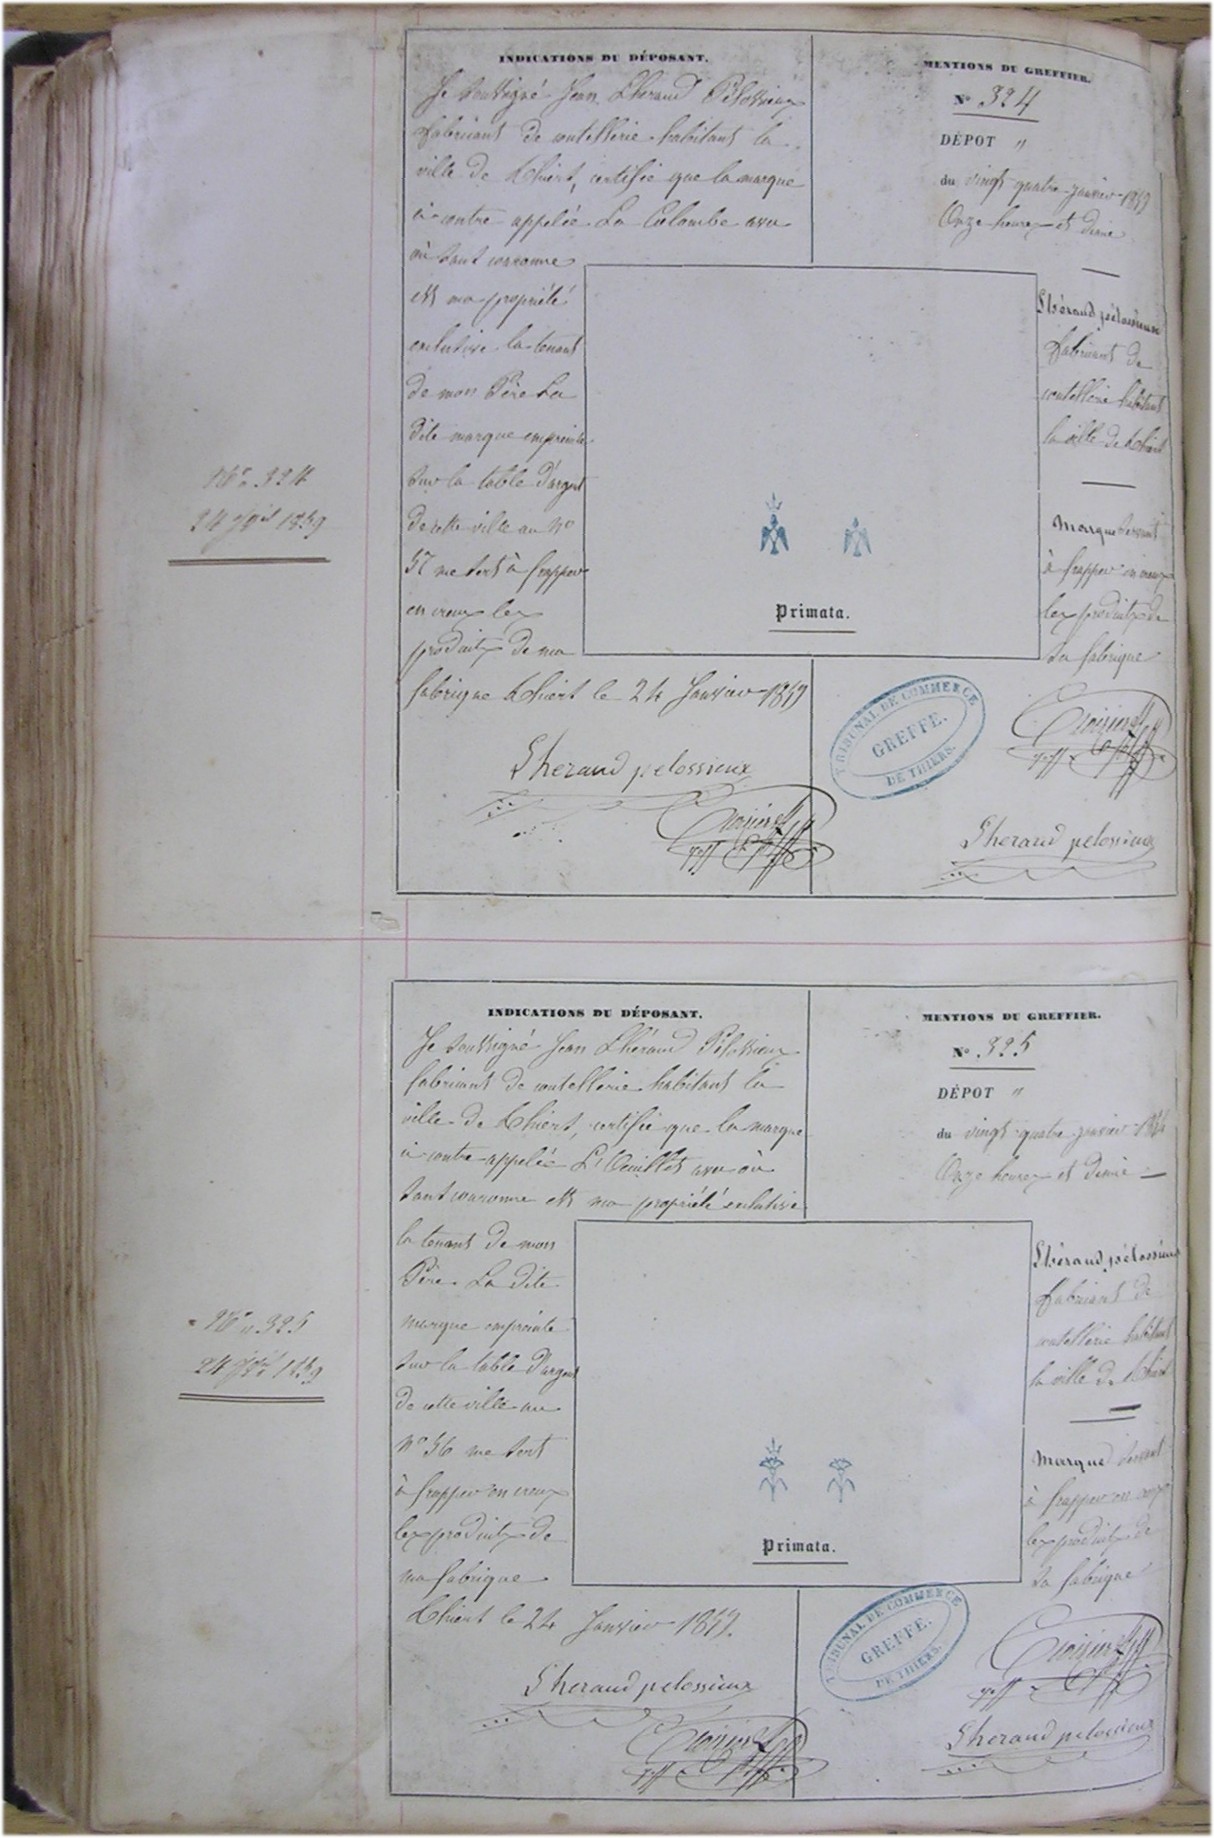 INDICATIONS DU DÉPOSANT.
Je soussigné Jean Lhéraud Pélossieux
fabricant de coutellerie habitant la
ville de Thiers, certifie que la marque
ci contre appelée La Colombe avec
où sant couronne
est ma propriété
exclusive la tenant
de mon Père La
dite marque empreinte
sur la table d'argent
de cette ville au no
57 me sert à frapper
en creux les
produits de ma
fabrique Thiers le 24 Janvier 1859
Lheraud pelossieux
MENTIONS DU GREFFIER.
No 324
DÉPOT "
du vingt quatre janvier 1859
Onze heures et demie
Lhéraud pélossieux
fabricant de
coutellerie habitant
la ville de Thiers
Marque servant
à frapper en creux
les produits de
sa fabrique
Primata.
TRIBUNAL DE COMMERCE
GREFFE.
DE THIERS.
Lheraud pelossieux
No. 324
24 Jer 1859
INDICATIONS DU DÉPOSANT.
Je soussigné Jean Lhéraud Pélossieux
fabricant de coutellerie habitant la
ville de Thiers, certifie que la marque
ci contre appelée L'Oeuillet avec où
sant couronne est ma propriété exclusive
la tenant de mon
Père. La dite
marque empreinte
sur la table d'argent
de cette ville au
No 56 me sert
à frapper en creux
les produits de
ma fabrique
Thiers le 24 Janvier 1859.
Lheraud pelossieux
MENTIONS DU GREFFIER.
No 325
DÉPOT "
du vingt quatre janvier
Onze heures et demie
Lhéraud pélossieux
fabricant de
coutellerie habitant
la ville de Thiers
Marque servant
à frapper en creux
les produits de
sa fabrique
Primata.
TRIBUNAL DE COMMERCE
GREFFE.
DE THIERS.
Lheraud pelossieux
No. 325
24 Jer 1859